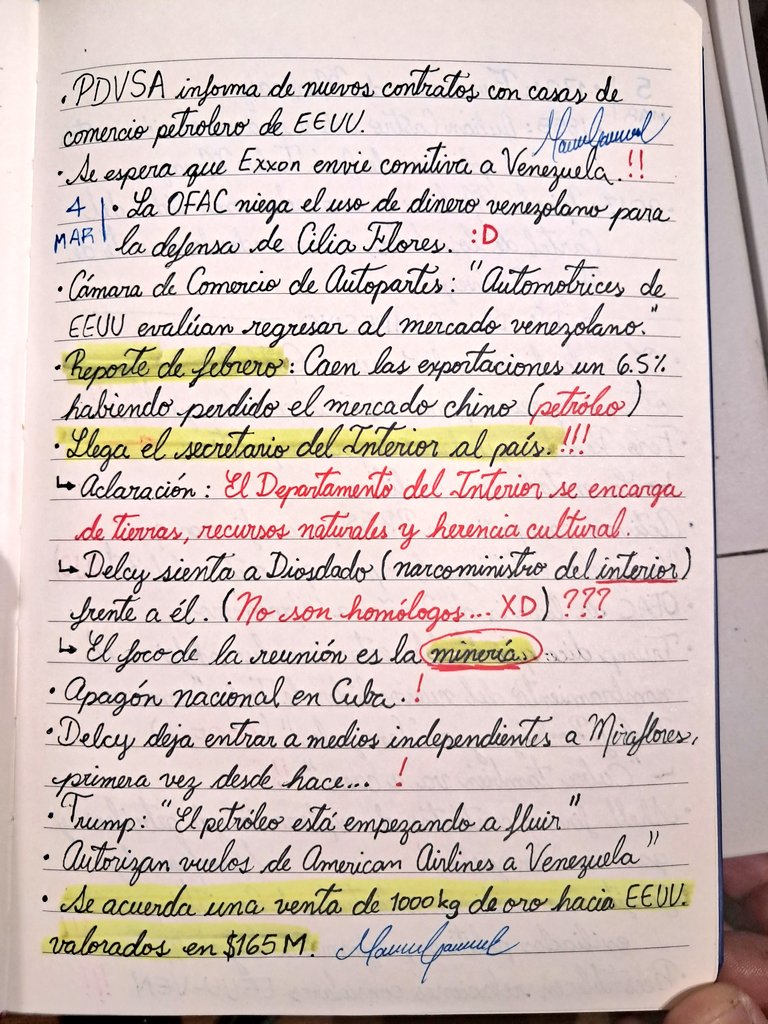 • PDVSA informa de nuevos contratos con casas de
comercio petrolero de EEUU.
• Se espera que Exxon envie comitiva a Venezuela. !!
4 MAR | • La OFAC niega el uso de dinero venezolano para
la defensa de Cilia Flores. :D
• Cámara de Comercio de Autopartes: "Automotrices de
EEUU evalúan regresar al mercado venezolano."
• Reporte de febrero: Caen las exportaciones un 6.5%
habiendo perdido el mercado chino (petróleo)
• Llega el secretario del Interior al país. !!!
↳ Aclaración: El Departamento del Interior se encarga
de tierras, recursos naturales y herencia cultural.
↳ Delcy sienta a Diosdado (narcoministro del interior)
frente a él. (No son homólogos... XD) ???
↳ El foco de la reunión es la minería.
• Apagón nacional en Cuba. !
• Delcy deja entrar a medios independientes a Miraflores,
primera vez desde hace... !
• Trump: "El petróleo está empezando a fluir"
• Autorizan vuelos de American Airlines a Venezuela"
• Se acuerda una venta de 1000kg de oro hacia EEUU.
valorados en $165M.